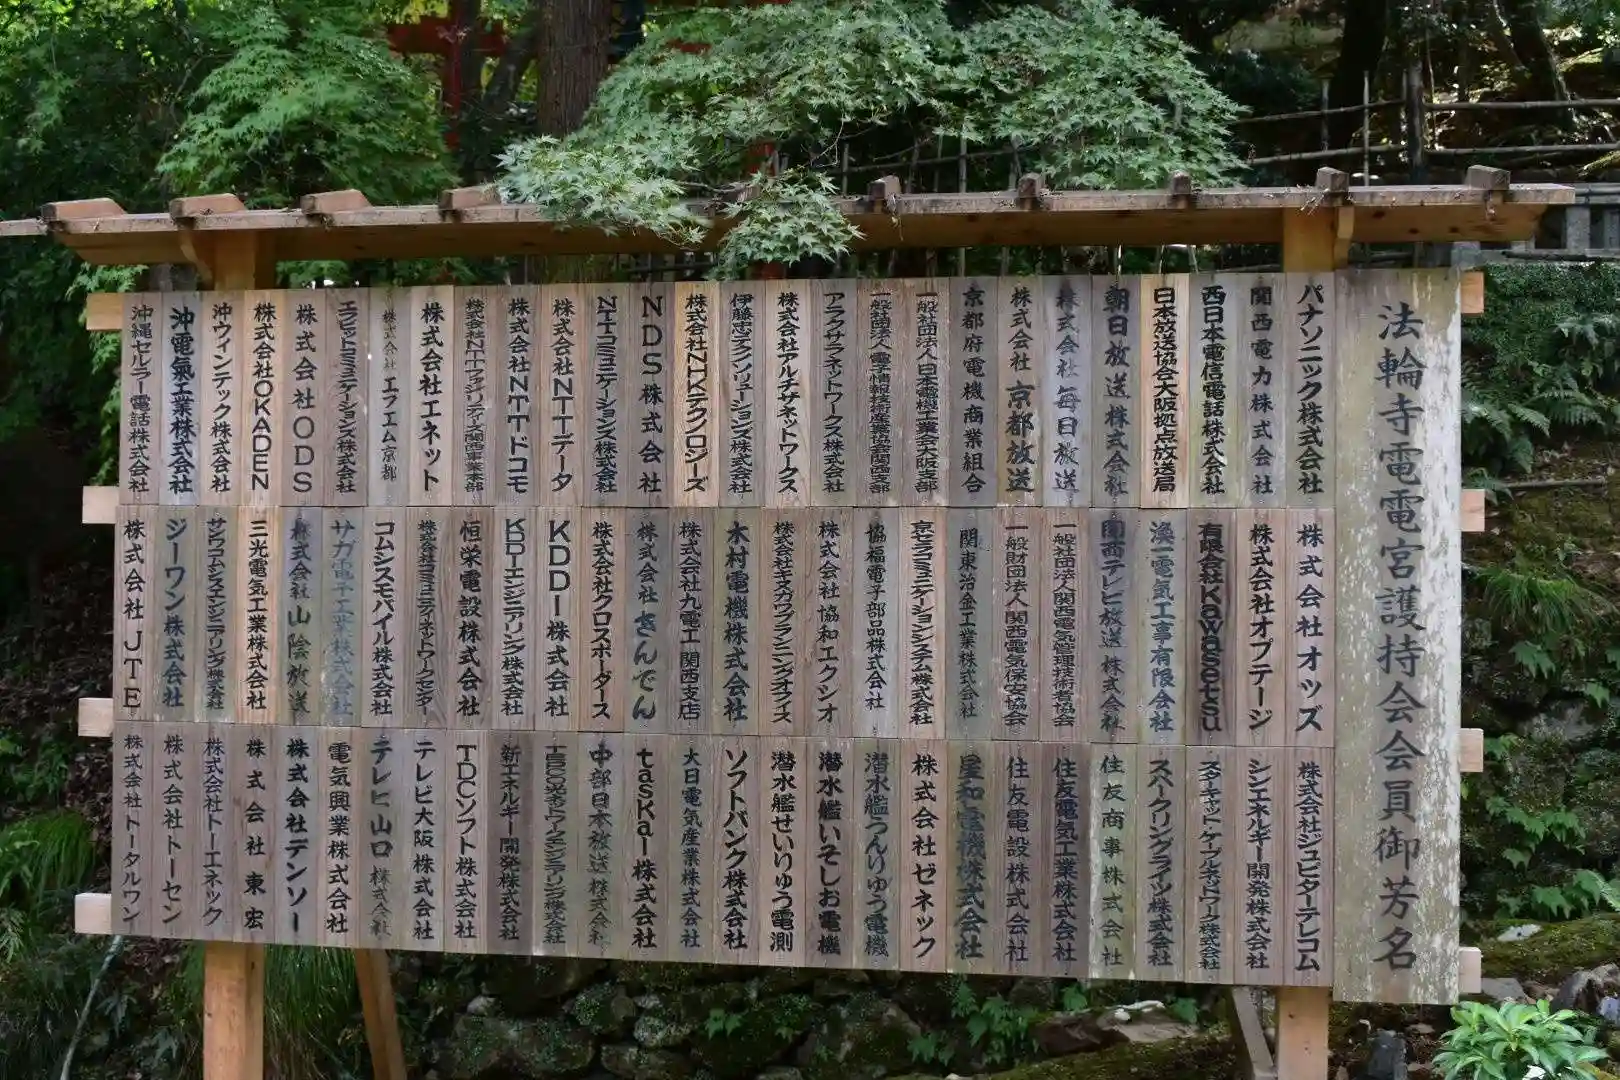 法輪寺電電宮護持会会員御芳名
パナソニック株式会社
関西電力株式会社
西日本電信電話株式会社
日本放送協会大阪拠点放送局
朝日放送株式会社
株式会社毎日放送
株式会社京都放送
京都府電機商業組合
一般社団法人日本電機工業会大阪支部
一般社団法人電子情報技術産業協会関西支部
アラクサラネットワークス株式会社
株式会社アルチザネットワークス
伊藤忠テクノソリューションズ株式会社
株式会社NHKテクノロジーズ
NDS株式会社
NTTコミュニケーションズ株式会社
株式会社NTTデータ
株式会社NTTドコモ
株式会社NTTファシリティーズ関西事業部
株式会社エネット
株式会社エフエム京都
エフビットコミュニケーションズ株式会社
株式会社ODS
株式会社OKADEN
沖ウィンテック株式会社
沖電氣工業株式会社
沖縄セルラー電話株式会社
株式会社オッズ
株式会社オプテージ
有限会社Kawasetsu
関西テレビ放送株式会社
渙一電気工事有限会社
一般社団法人関西電気管理技術者協会
一般財団法人関西電気保安協会
関東冶金工業株式会社
京セラコミュニケーションシステム株式会社
協福電子部品株式会社
株式会社協和エクシオ
株式会社キヌガワプランニングオフィス
木村電機株式会社
株式会社九電工関西支店
株式会社きんでん
株式会社クロスボーダーズ
KDDI株式会社
KDDIエンジニアリング株式会社
恒栄電設株式会社
株式会社コミュニティネットワークセンター
コムシスモバイル株式会社
サガ電子工業株式会社
株式会社山陰放送
三光電気工業株式会社
サンワコムシスエンジニアリング株式会社
ジーワン株式会社
株式会社JTE
株式会社ジュピターテレコム
シンエネルギー開発株式会社
スターキャット・ケーブルネットワーク株式会社
スパークリングライツ株式会社
住友商事株式会社
住友電気工業株式会社
住友電設株式会社
星和電機株式会社
株式会社ゼネック
潜水艦うんりゅう電機
潜水艦いそしお電機
潜水艦せいりゅう電測
ソフトバンク株式会社
大日電気産業株式会社
taskal株式会社
中部日本放送株式会社
新エネルギー開発株式会社
TDCソフト株式会社
テレビ大阪株式会社
テレビ山口株式会社
電気興業株式会社
株式会社デンソー
株式会社東宏
株式会社トーエネック
株式会社トーセン
株式会社トータルワン